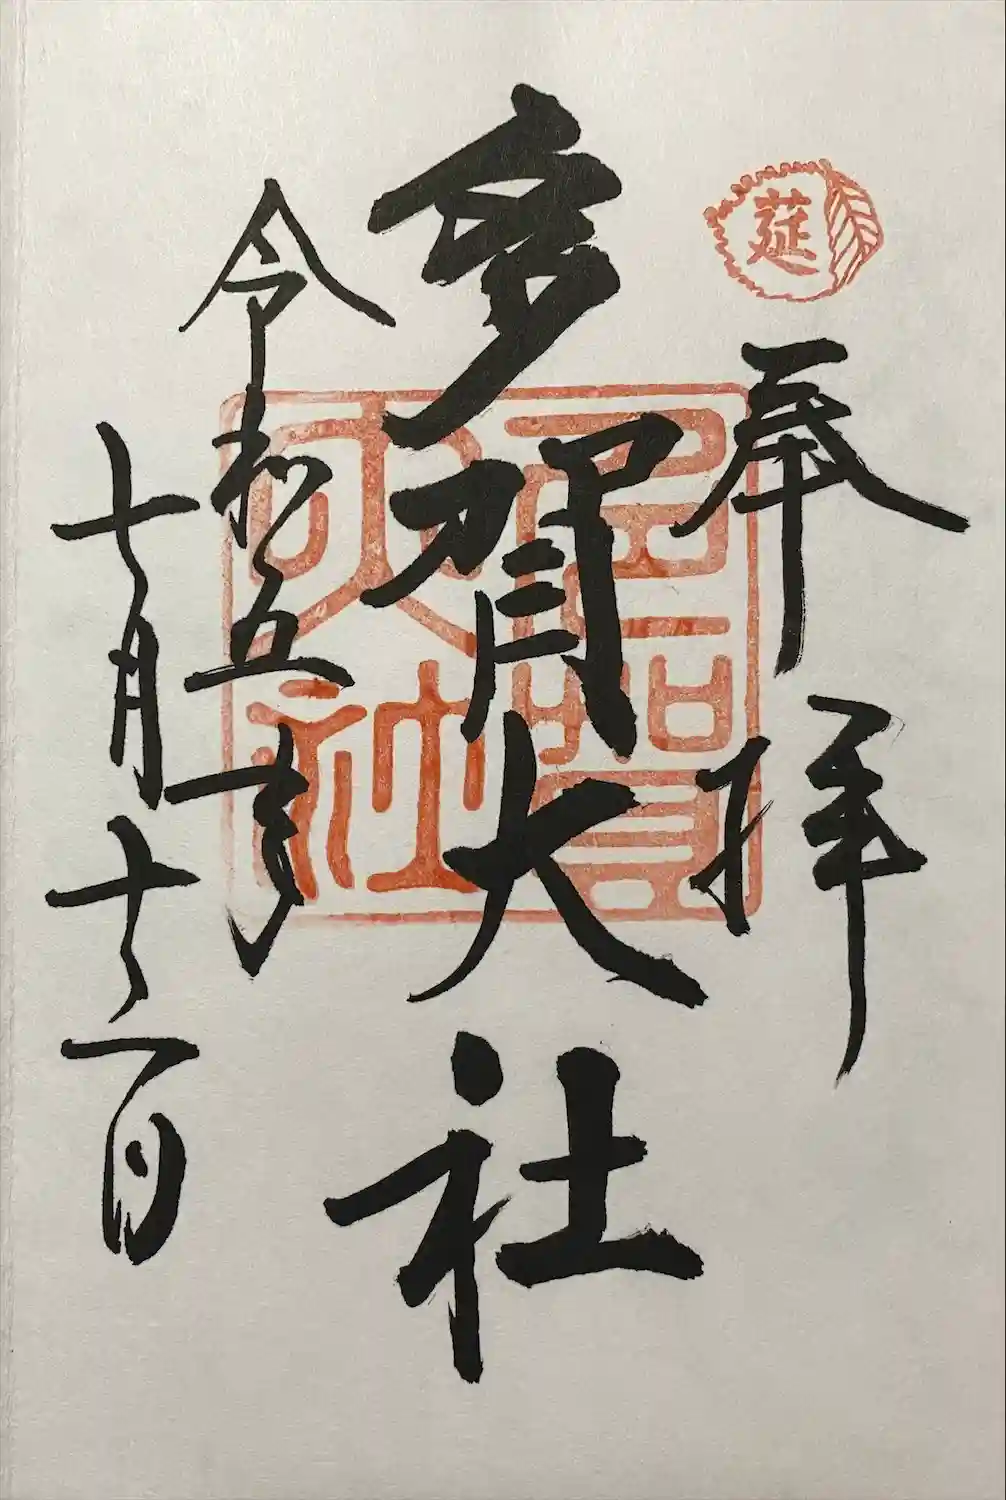 莚
奉拝
多賀大社
多賀大社
令和五年
十月十一日